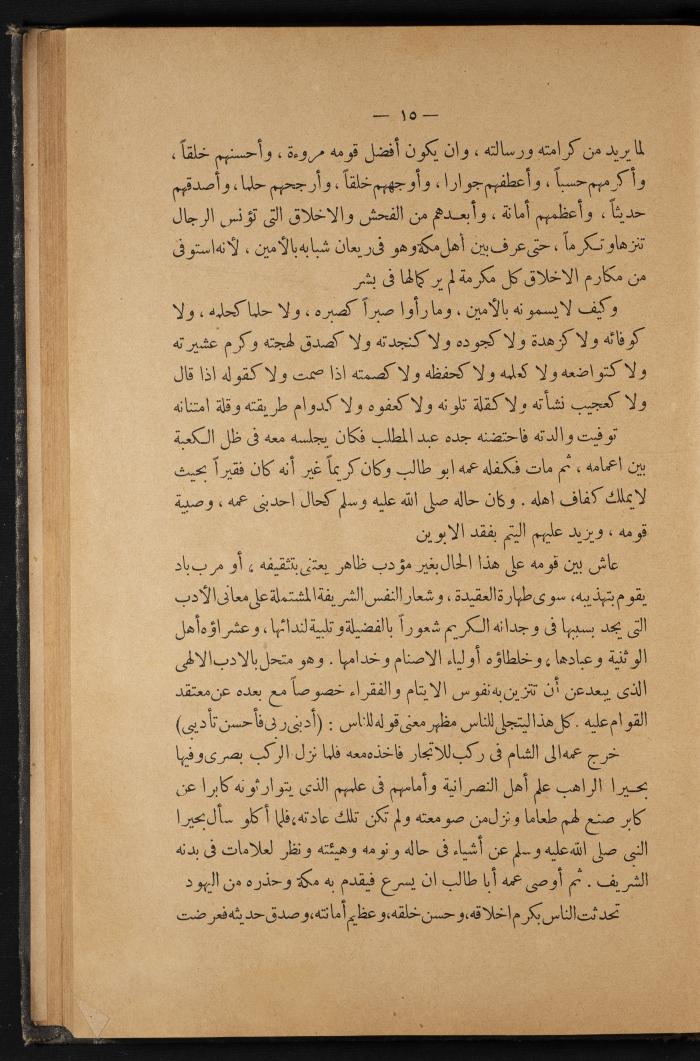 — ١٥ —
لما يريد من كرامته ورسالته ، وان يكون أفضل قومه مروءة ، وأحسنهم خلقاً ،
وأكرمهم حسباً ، وأعطفهم جوارا ، وأوجههم خلقاً ، وأرجحهم حلما ، وأصدقهم
حديثاً ، وأعظمهم أمانة ، وأبعدهم من الفحش والاخلاق التى تؤنس الرجال
تنزها وتكرماً ، حتى عرف بين أهل مكة وهو فى ريعان شبابه بالأمين ، لأنه استوفى
من مكارم الاخلاق كل مكرمة لم ير كمالها فى بشر
وكيف لا يسمونه بالأمين ، وما رأوا صبراً كصبره ، ولا حلما كحلمه ، ولا
كوفائه ولا كزهدة ولا كجوده ولا كنجدته ولا كصدق لهجته وكرم عشيرته
ولا كتواضعه ولا كعلمه ولا كحفظه ولا كصمته اذا صمت ولا كقوله اذا قال
ولا كعجيب نشأته ولا كقلة تلونه ولا كعفوه ولا كدوام طريقته وقلة امتنانه
توفيت والدته فاحتضنه جده عبد المطلب فكان يجلسه معه فى ظل الكعبة
بين اعمامه ، ثم مات فكفله عمه ابو طالب وكان كريماً غير أنه كان فقيراً بحيث
لا يملك كفاف اهله . وكان حاله صلى الله عليه وسلم كحال احد بنى عمه ، وصبية
قومه ، ويزيد عليهم اليتم بفقد الابوين
عاش بين قومه على هذا الحال بغير مؤدب ظاهر يعتنى بتثقيفه ، أو مرب باد
يقوم بتهذيبه، سوى طهارة العقيدة ، وشعار النفس الشريفة المشتملة على معانى الأدب
التى يجد بسببها فى وجدانه الكريم شعوراً بالفضيلة وتلبية لندائها ، وعشراؤه أهل
الوثنية وعبادها ، وخلطاؤه أولياء الاصنام وخدامها . وهو متحل بالادب الالهى
الذى يبعد عن أن تتزين به نفوس الايتام والفقراء خصوصاً مع بعده عن معتقد
القوام عليه . كل هذا ليتجلى للناس مظهر معنى قوله للناس : (أدبنى ربى فأحسن تأديبى)
خرج عمه الى الشام فى ركب للاتجار فاخذه معه فلما نزل الركب بصرى وفيها
بحيرا الراهب علم أهل النصرانية وأمامهم فى علمهم الذى يتوارثونه كابرا عن
كابر صنع لهم طعاما ونزل من صومعته ولم تكن تلك عادته، فلما أكلو سأل بحيرا
النبى صلى الله عليه وسلم عن أشياء فى حاله ونومه وهيئته ونظر لعلامات فى بدنه
الشريف . ثم أوصى عمه أبا طالب ان يسرع فيقدم به مكة وحذره من اليهود
تحدثت الناس بكرم اخلاقه، وحسن خلقه، وعظيم أمانته، وصدق حديثه فعرضت